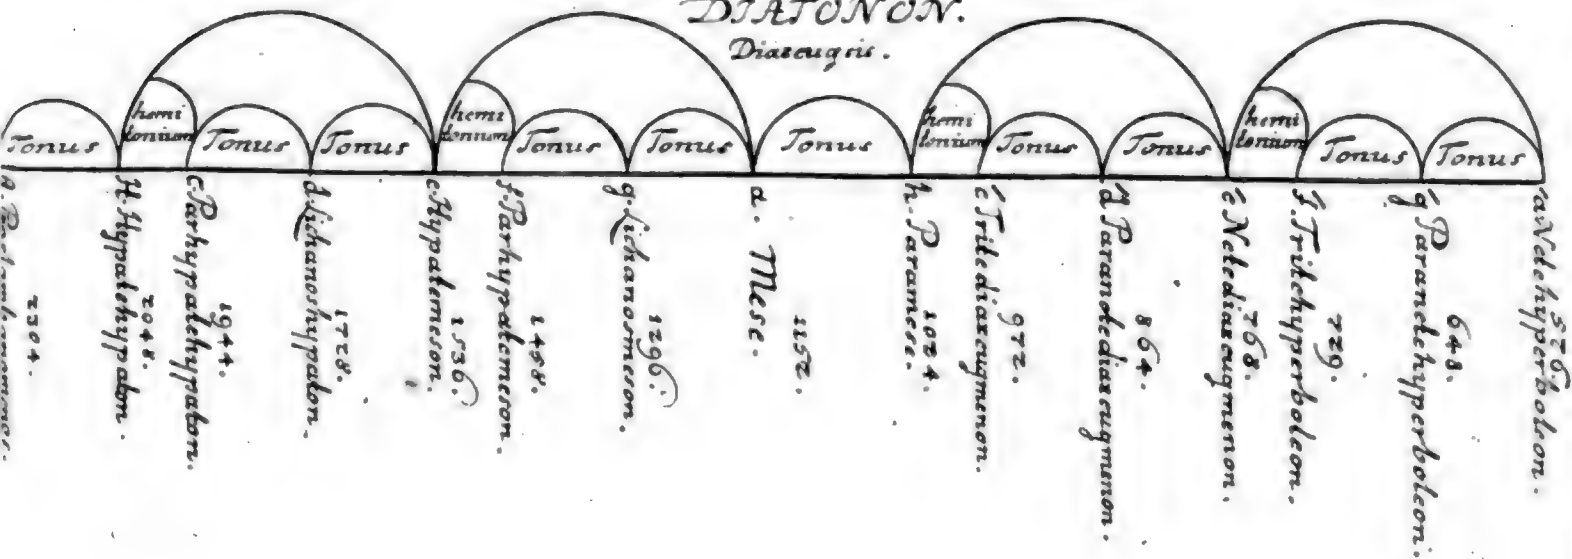 DIATONON.
Diazeugsis.
Tonus
hemi
tonium
Tonus
Tonus
hemi
tonium
Tonus
Tonus
Tonus
hemi
tonium
Tonus
Tonus
hemi
tonium
Tonus
Tonus
2304.
H. Hypatehypaton.
2048.
c Parhypatehypaton.
1944.
d. Lichanoshypaton.
1728.
e Hypatemeson.
1536.
f. Parhypatemeson.
1458.
g. Lichanosmeson.
1296.
a. Mese.
1152.
h. Paramese.
1024.
c Tritediazeugmenon.
972.
d Paranetediazeugmenon.
864.
e Netediazeugmenon.
768.
f. Tritehyperboleon.
729.
g Paranetehyperboleon.
648.
a Netehyperboleon.
576.